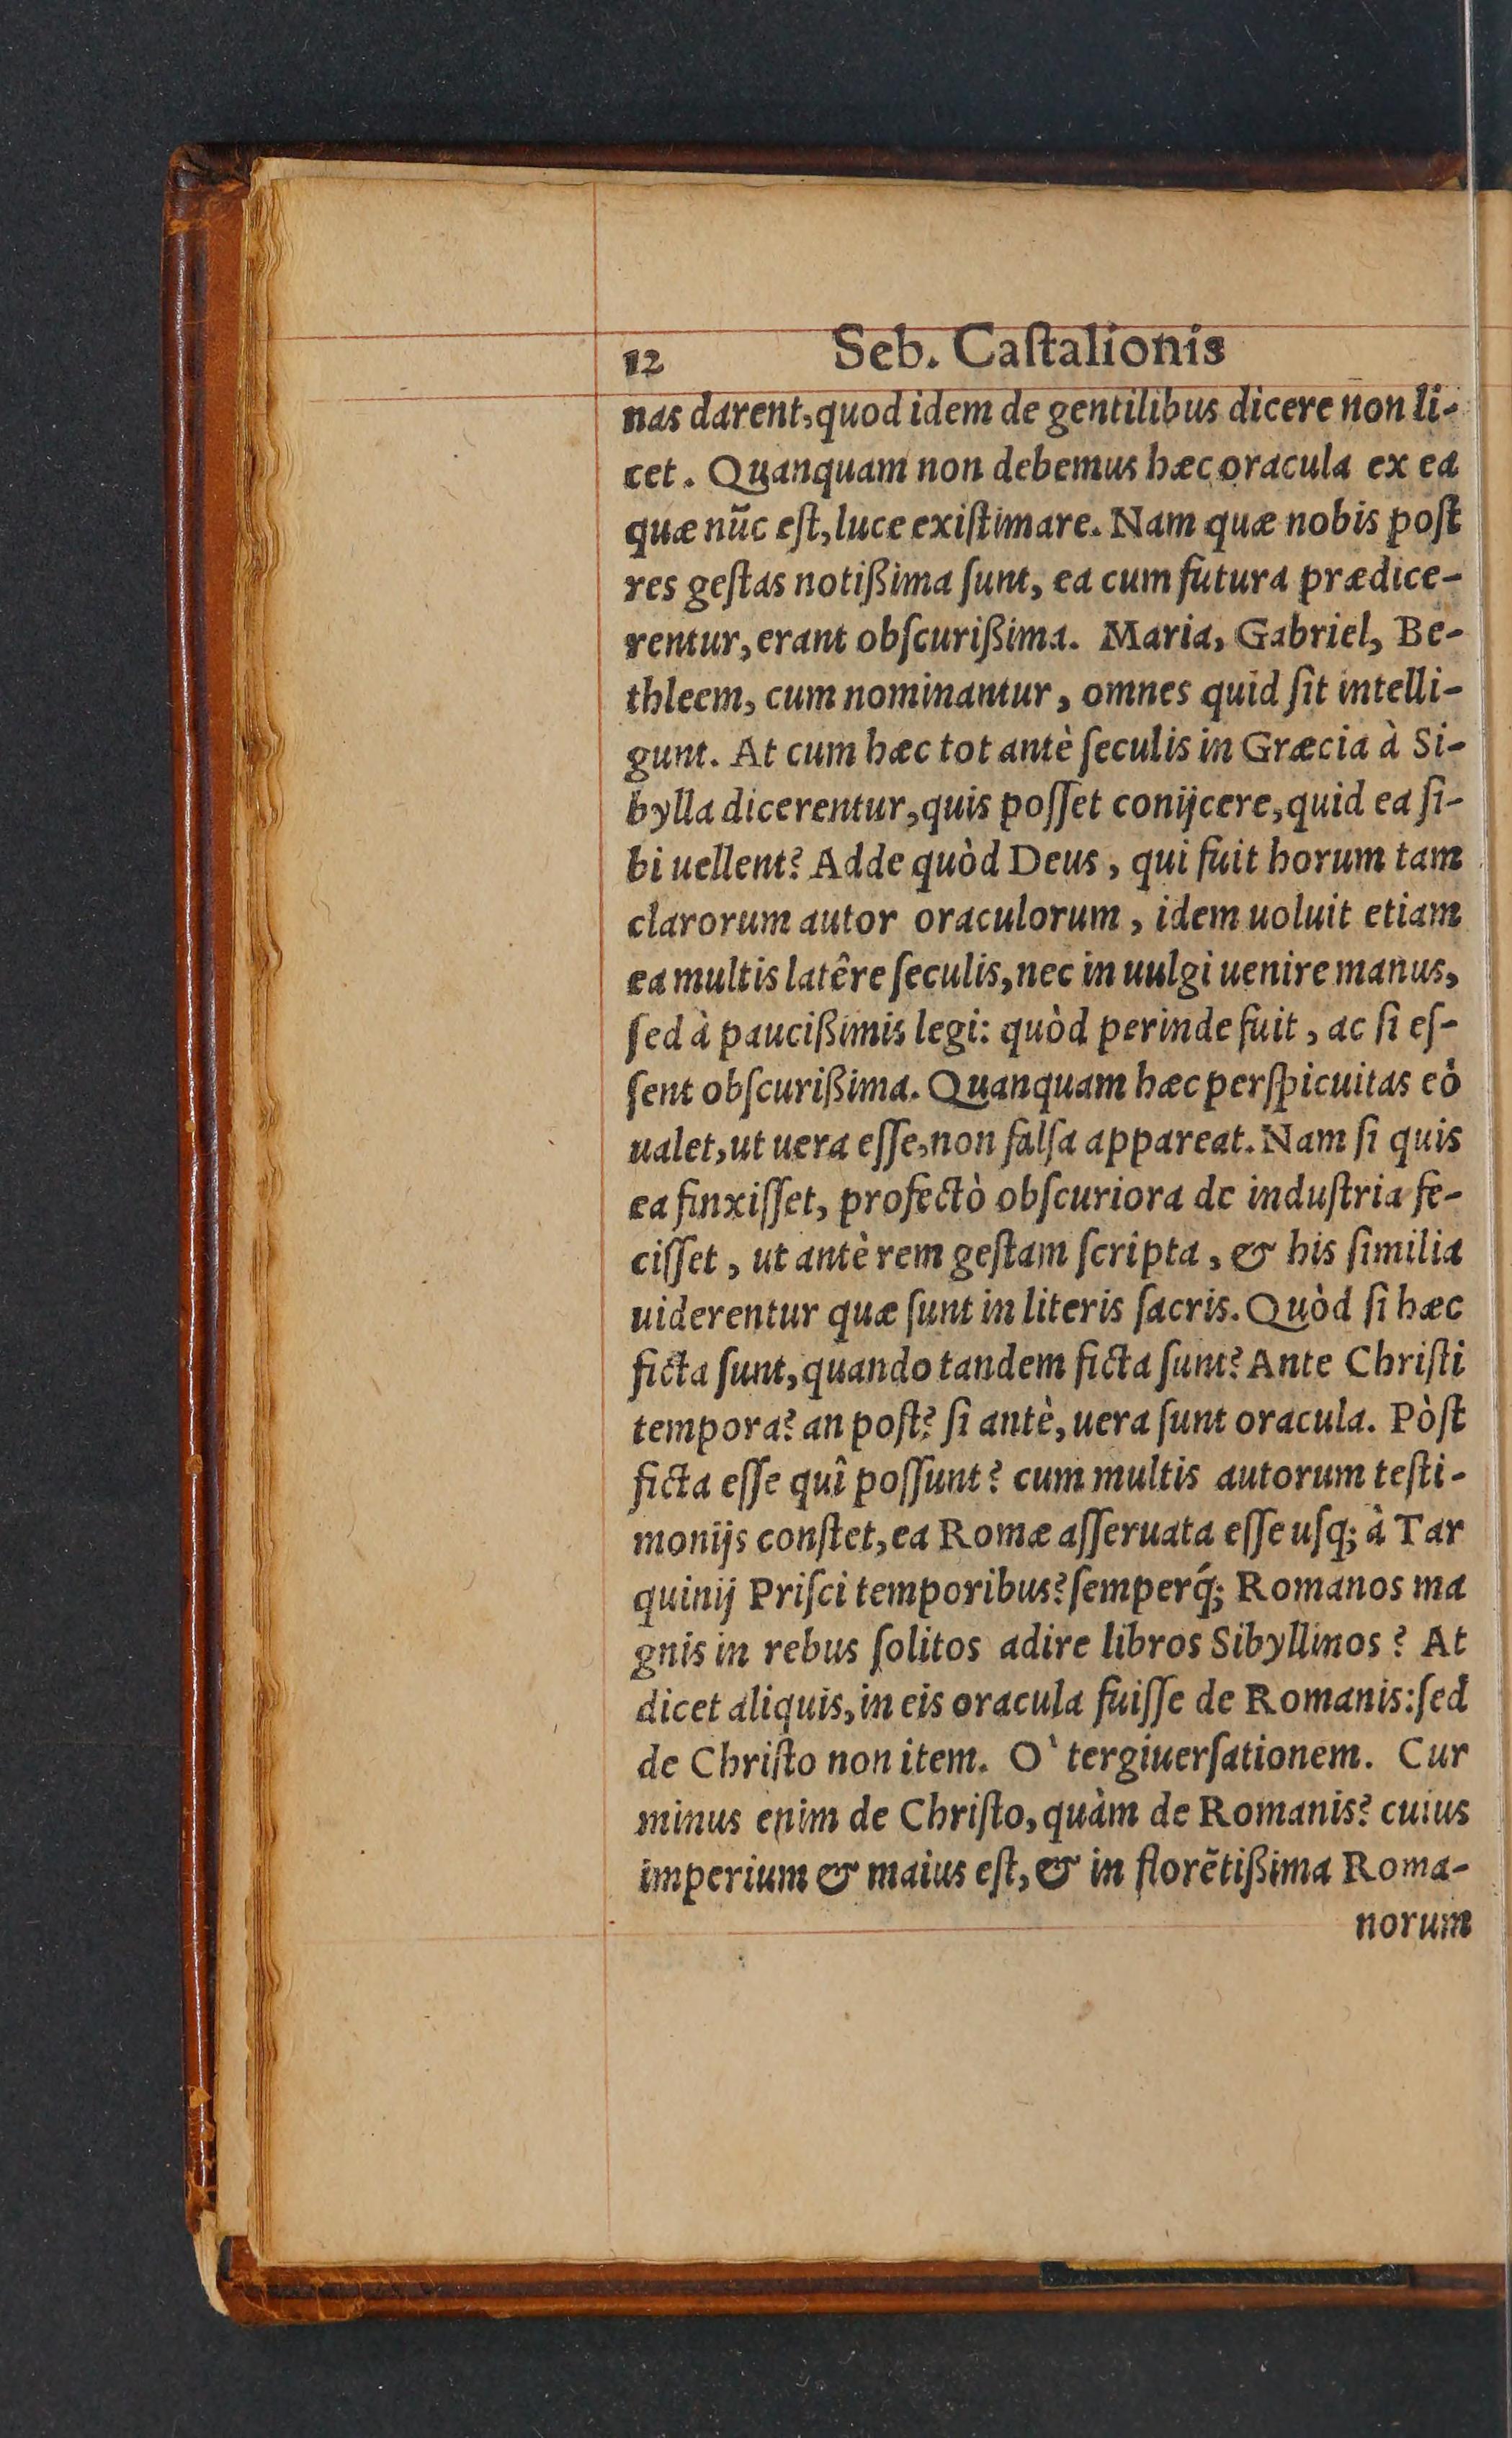 12 Seb. Caſtalionis
nas darent, quod idem de gentilibus dicere non li-
cet. Quanquam non debemus hæc oracula ex ea
quæ nũc eſt, luce exiſtimare. Nam quæ nobis poſt
res geſtas notißima ſunt, ea cum futura prædice-
rentur, erant obſcurißima. Maria, Gabriel, Be-
thleem, cum nominantur, omnes quid ſit intelli-
gunt. At cum hæc tot antè ſeculis in Græcia à Si-
bylla dicerentur, quis poſſet conijcere, quid ea ſi-
bi uellent? Adde quòd Deus, qui fuit horum tam
clarorum autor oraculorum, idem uoluit etiam
ea multis latêre ſeculis, nec in uulgi uenire manus,
ſed à paucißimis legi: quòd perinde fuit, ac ſi eſ-
ſent obſcurißima. Quanquam hæc perſpicuitas eò
ualet, ut uera eſſe, non falſa appareat. Nam ſi quis
ea finxiſſet, profectò obſcuriora de induſtria fe-
ciſſet, ut antè rem geſtam ſcripta, & his ſimilia
uiderentur quæ ſunt in literis ſacris. Quòd ſi hæc
ficta ſunt, quando tandem ficta ſunt? Ante Chriſti
tempora? an poſt? ſi antè, uera ſunt oracula. Pòſt
ficta eſſe quî poſſunt? cum multis autorum teſti-
monijs conſtet, ea Romæ aſſeruata eſſe uſq; à Tar
quinij Priſci temporibus? ſemperq́; Romanos ma
gnis in rebus ſolitos adire libros Sibyllinos? At
dicet aliquis, in eis oracula fuiſſe de Romanis: ſed
de Chriſto non item. O` tergiuerſationem. Cur
minus enim de Chriſto, quàm de Romanis? cuius
imperium & maius eſt, & in florẽtißima Roma-
norum